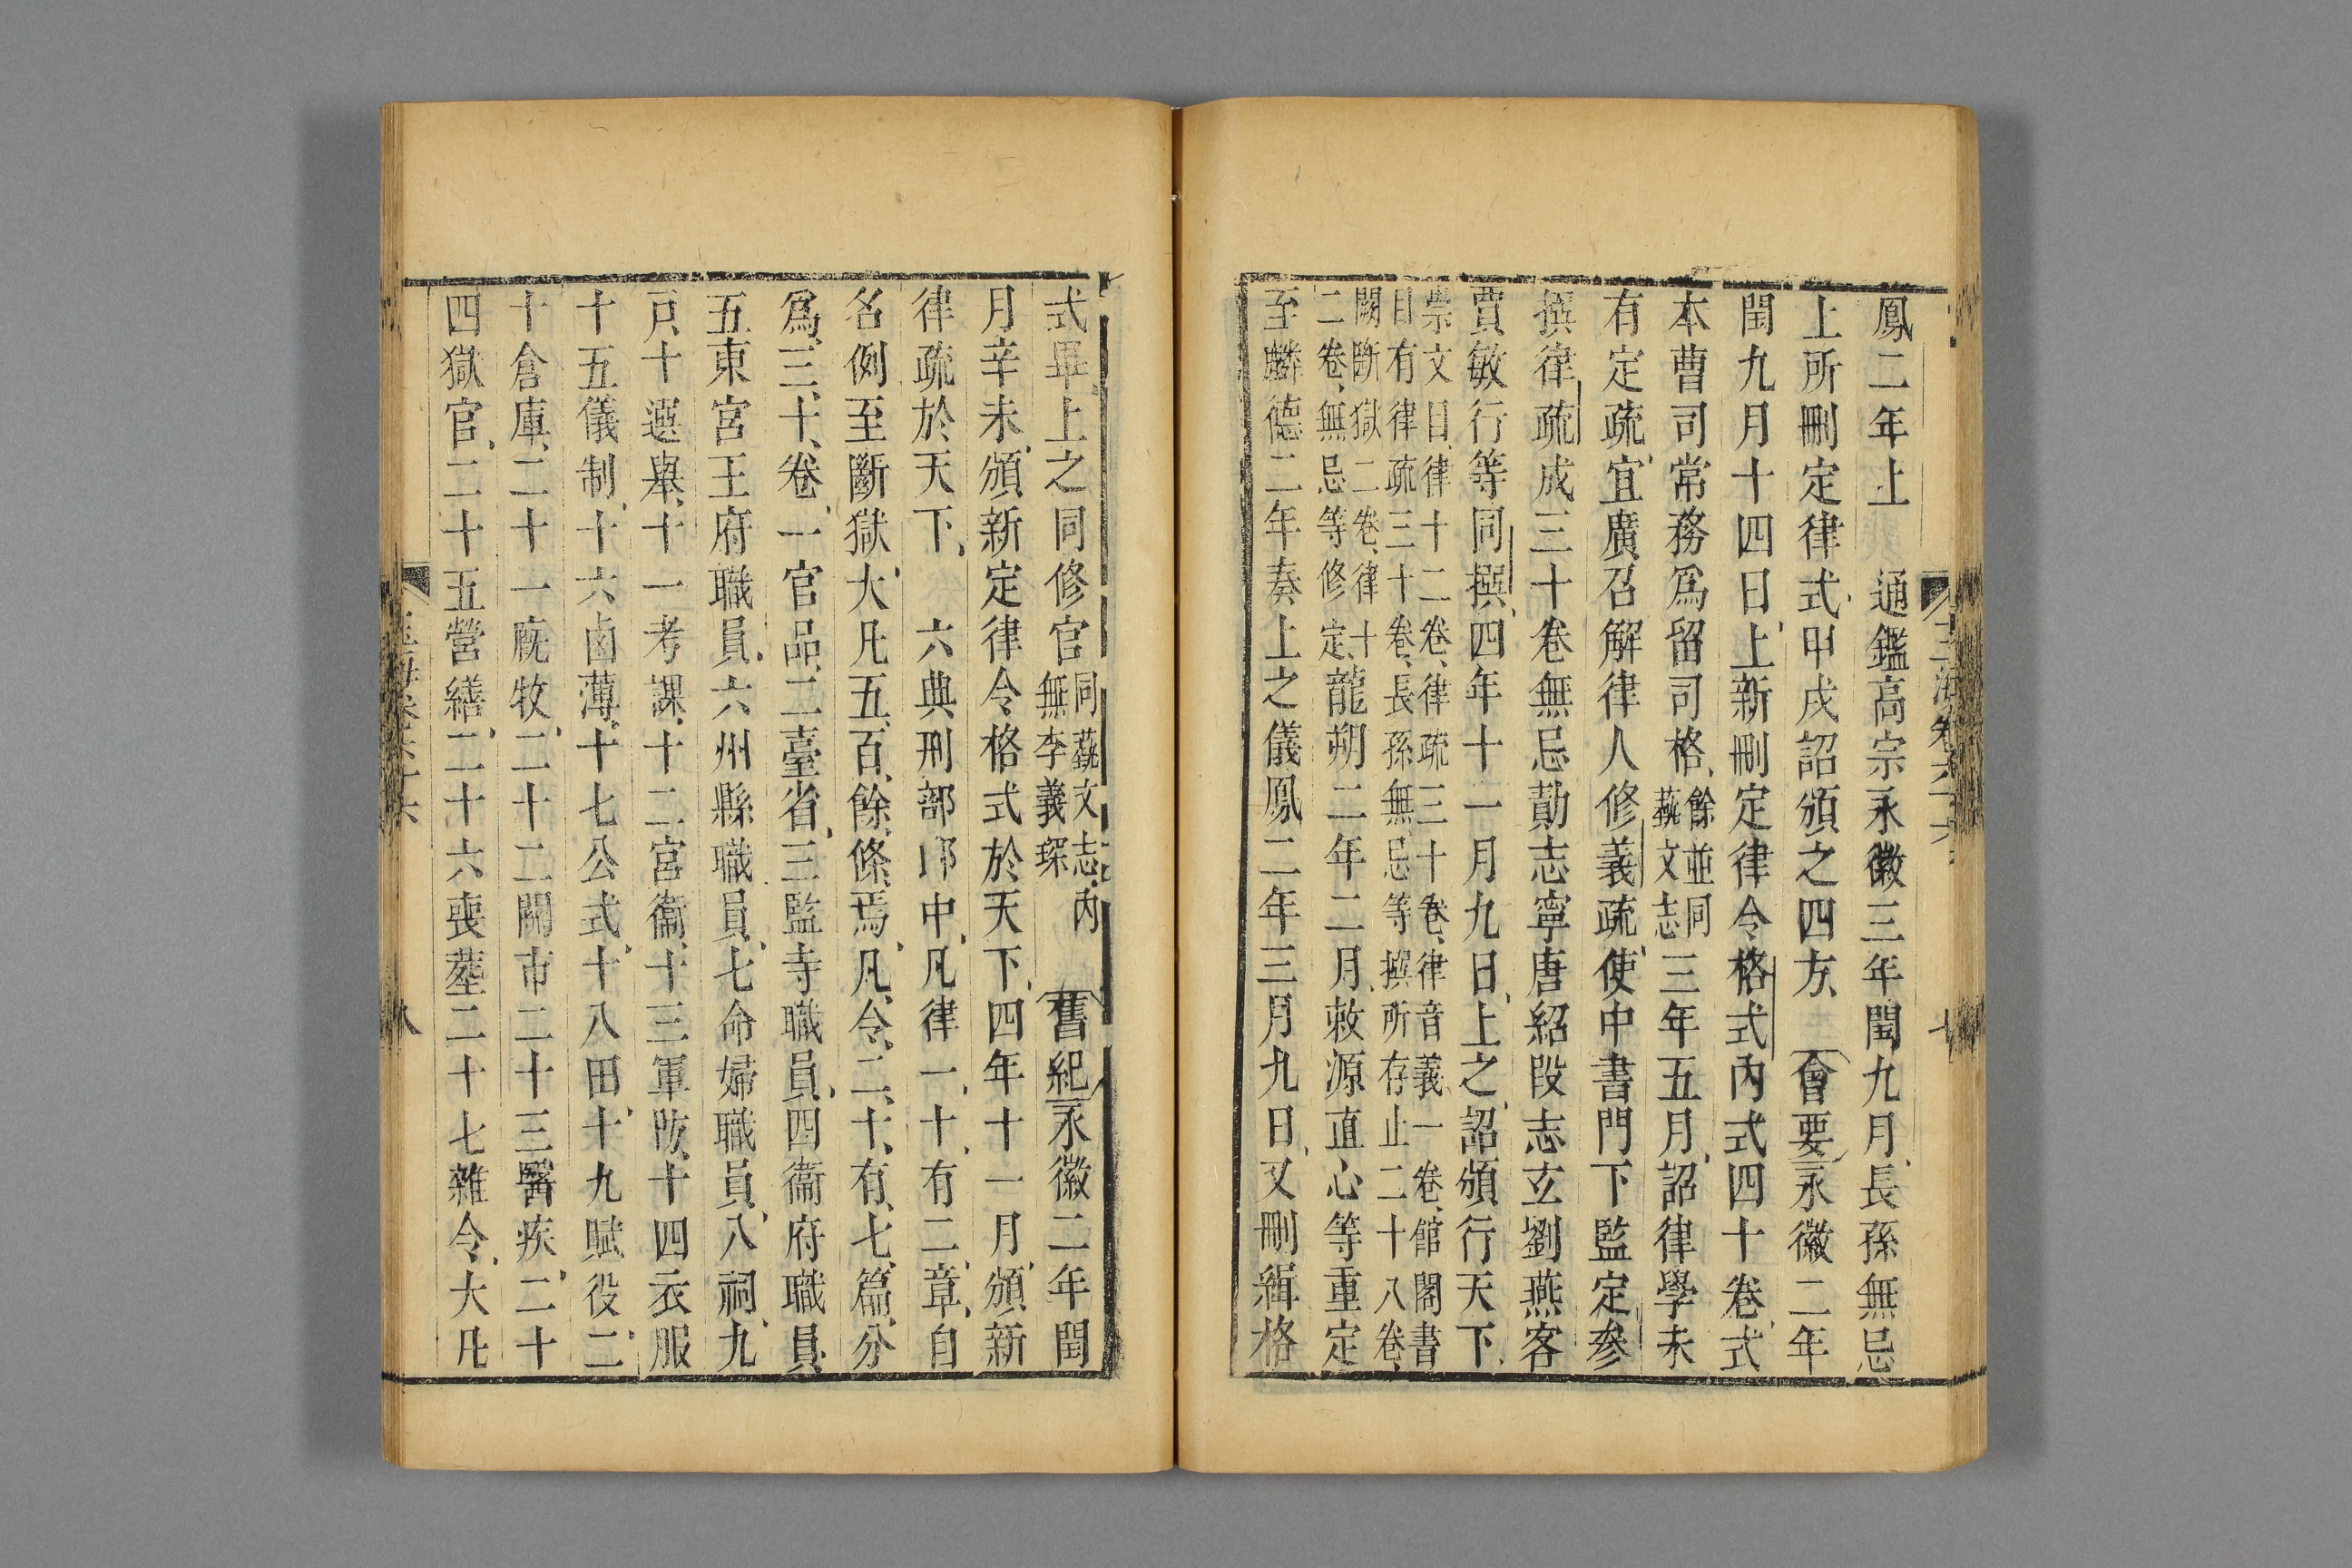 鳳二年上　通鑑高宗永徽三年閏九月長孫無忌
上所刪定律式甲戌詔頒之四方　會要永徽二年
閏九月十四日上新刪定律令格式內式四十卷式
本曹司常務爲留司格餘並同藝文志三年五月詔律學未
有定疏宜廣召解律人修義疏使中書門下監定參
撰律疏成三十卷無忌勣志寧唐紹段志玄劉燕客
賈敏行等同撰四年十一月九日上之詔頒行天下
崇文目律十二卷律疏三十卷律音義一卷館閣書
目有律疏三十卷長孫無忌等撰所存止二十八卷
闕斷獄二卷律十
二卷無忌等修定龍朔二年二月敕源直心等重定
至麟德二年奏上之儀鳳二年三月九日又刪緝格
玉海卷六十六　七
式畢上之同修官同藝文志內無李義琛　舊紀永徽二年閏
月辛未頒新定律令格式於天下四年十一月頒新
律疏於天下　六典刑部郎中凡律一十有二章自
名例至斷獄大凡五百餘條焉凡令二十有七篇分
爲三十卷一官品二臺省三監寺職員四衞府職員
五東宮王府職員六州縣職員七命婦職員八祠九
戶十選舉十一考課十二宮衞十三軍防十四衣服
十五儀制十六鹵薄十七公式十八田十九賦役二
十倉庫二十一廐牧二十二關市二十三醫疾二十
四獄官二十五營繕二十六喪葬二十七雜令大凡
玉海卷六十六　八